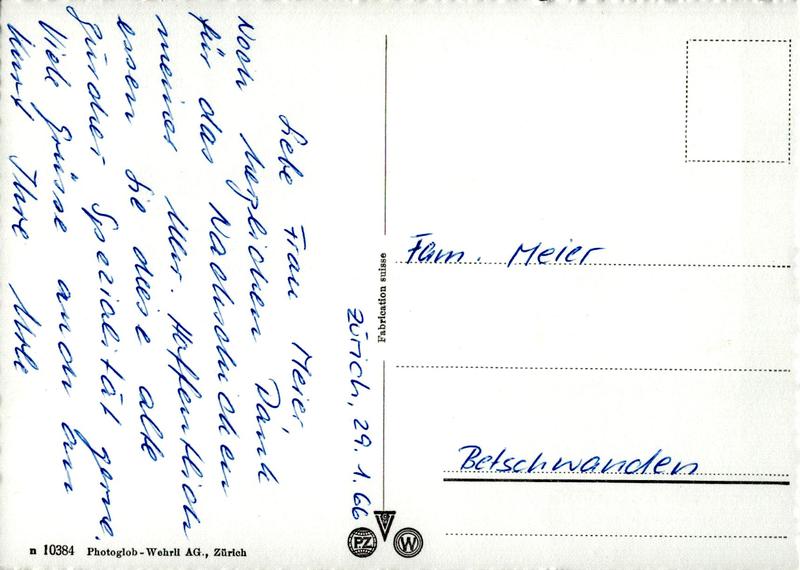 Zürich, 29. 1. 66
Liebe Frau Meier,
Noch herzlichen Dank
für das Nachschicken
meiner Uhr. Hoffentlich
essen Sie diese alte
Zürcher Spezialität gerne.
Viele Grüsse auch an
Kurt, Ihre Ulle
Fabrication suisse
Fam. Meier
Betschwanden
n 10384 Photoglob-Wehrli AG., Zürich
PZ
W